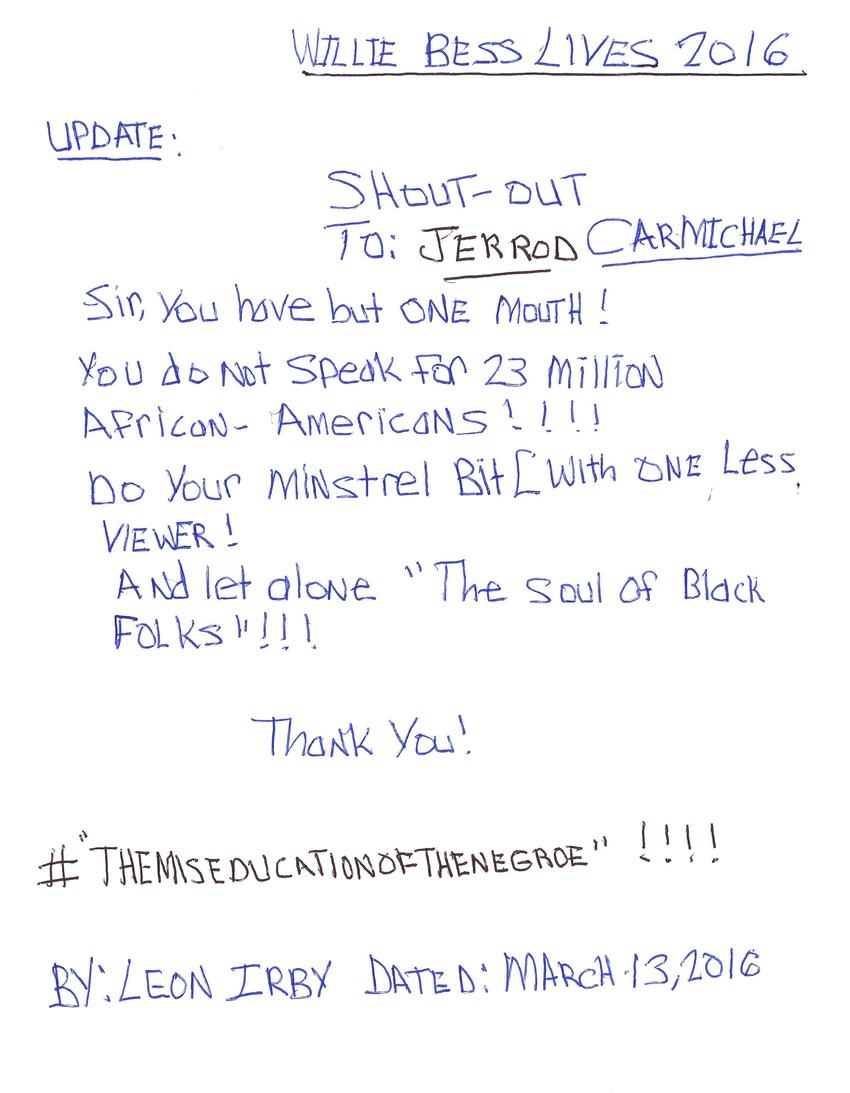 WILLIE BESS LIVES 2016
UPDATE:
SHOUT-OUT
TO: JERROD CARMICHAEL
Sir, You have but ONE MOUTH!
You do Not Speak For 23 Million
African-Americans!!!!
Do Your Minstrel Bit [With ONE Less
VIEWER!
And let alone "The Soul of Black
FOLKS"!!!
Thank You!
#"THEMISEDUCATIONOFTHENEGROE" !!!!
BY: LEON IRBY DATED: MARCH 13, 2016